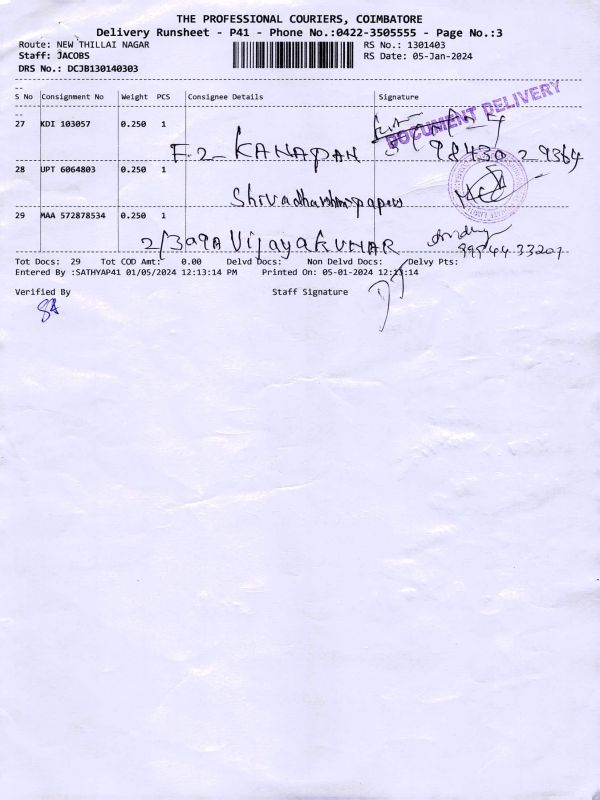 THE PROFESSIONAL COURIERS, COIMBATORE
Delivery Runsheet - P41 - Phone No.:0422-3505555 - Page No.:3
Route: NEW THILLAI NAGAR RS No.: 1301403
Staff: JACOBS RS Date: 05-Jan-2024
DRS No.: DCJB130140303
S No Consignment No Weight PCS Consignee Details Signature
DOCUMENT DELIVERY
27 KDI 103057 0.250 1
F-2- KANAPAN 98430 29364
28 UPT 6064803 0.250 1
29 MAA 572878534 0.250 1
2/309A VijayaKUMAR 99944 33207
Tot Docs: 29 Tot COD Amt: 0.00 Delvd Docs: Non Delvd Docs: Delvy Pts:
Entered By :SATHYAP41 01/05/2024 12:13:14 PM Printed On: 05-01-2024 12:13:14
Verified By Staff Signature